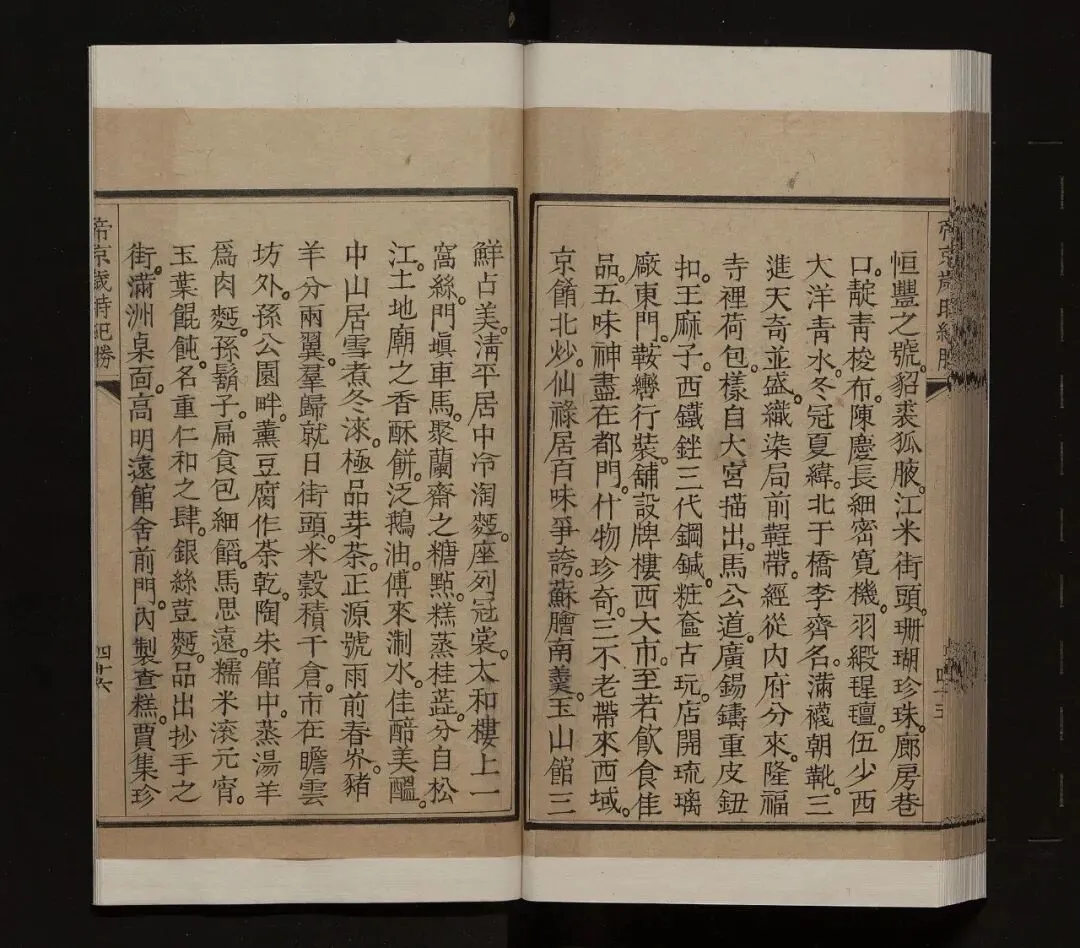 恒豐之號。貂裘狐腋。江米街頭。珊瑚珍珠。廊房巷
口。靛青梭布。陳慶長細密寬機。羽緞瑆璮。伍少西
大洋青水。冬冠夏緯。北于橋李齊名。滿襪朝靴。三
進天奇並盛。織染局前鞓帶。經從內府分來。隆福
寺裡荷包。樣自大宮描出。馬公道。廣錫鑄重皮鈕
扣。王麻子。西鐵銼三代鋼鍼。粧奩古玩。店開琉璃
廠東門。鞍轡行裝。舖設牌樓西大市。至若飲食佳
品。五味神盡在都門。什物珍奇。三不老帶來西域。
京餚北炒。仙祿居百味爭誇。蘇膾南羹。玉山館三
鮮占美。清平居中冷淘麵。座列冠裳。太和樓上一
窩絲。門塡車馬。聚蘭齋之糖點。糕蒸桂蕋。分自松
江。土地廟之香酥餅。泛鵝油。傅來淛水。佳醅美醞。
中山居雪煮冬淶。極品芽茶。正源號雨前春岕。豬
羊分兩翼。羣歸就日街頭。米穀積千倉。市在瞻雲
坊外。孫公園畔。薰豆腐作茶乾。陶朱館中。蒸湯羊
爲肉麵。孫鬍子。扁食包細餡。馬思遠。糯米滾元宵。
玉葉餛飩。名重仁和之肆。銀絲荳麵。品出抄手之
街。滿洲桌面。高明遠館舍前門。內製查糕。賈集珍
帝京歲時紀勝
四十六